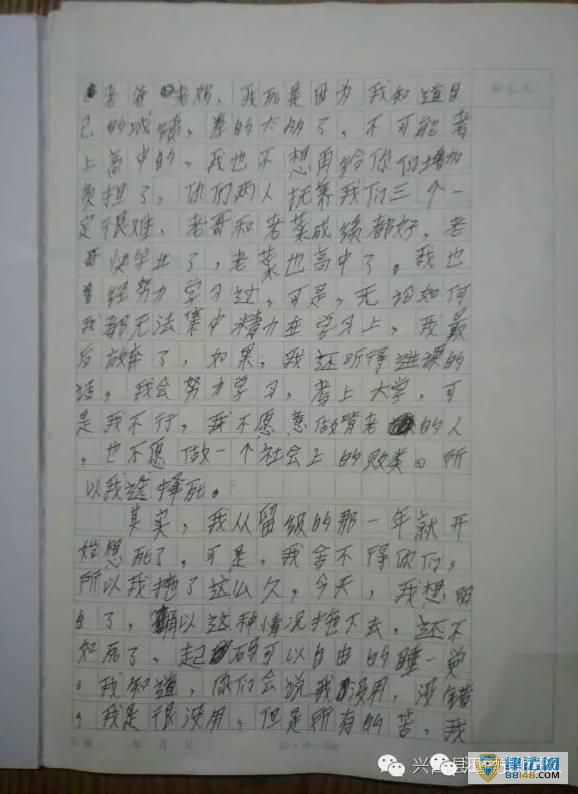 老爸老妈,我死是因为我知道自
己的成绩,差的太多了,不可能考
上高中的,我也不想再给你们增加
负担了,你们两人抚养我们三个一
定很难,老哥和老菜成绩都好,老
哥快毕业了,老菜也高中了。我也
经努力学习过,可是,无论如何
我都无法集中精力在学习上,我最
后放弃了,如果,我还听得进课的
话,我会努力学习,考上大学,可
是我不行,我不愿意做啃老的人
,也不愿做一个社会上的败类。所
以我选择死。
其实,我从留级的那一年就开
始想死了,可是,我舍不得你们,
所以我拖了这么久,今天,我想明
白了,以这种情况拖下去,还不
如死了,起码可以自由的睡一觉
。我知道,你们会说我没用,没错
,我是很没用,但是所有的苦,我
年 月 日
兴国县
律法网
88148.com